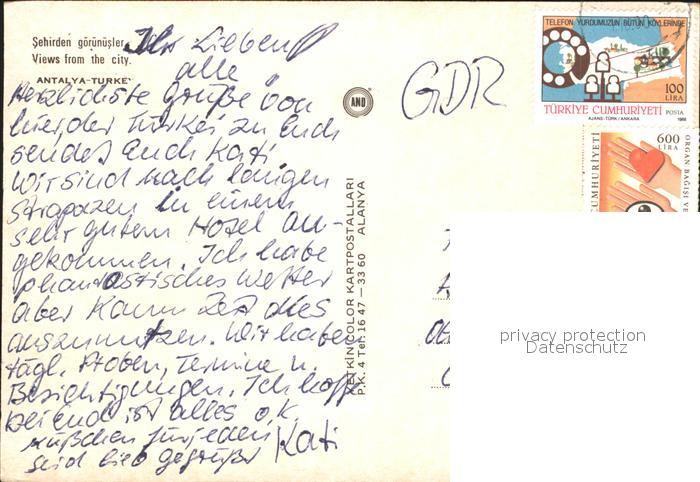 Şehirden görünüşler
Views from the city.
ANTALYA-TURKEY
Ihr Lieben
alle
Herzlichste Grüße von
hier, der Türkei zu Euch
sendet Euch Kati
Wir sind nach langen
Strapazen in einem
sehr gutem Hotel an-
gekommen. Ich habe
phantastisches Wetter
aber kaum Zeit dies
auszunutzen. Wir haben
tägl. Proben, Termine u.
Besichtigungen. Ich hoffe
bei Euch ist alles o.k.
Küßchen für jeden
seid lieb gegrüßt Kati
AND
KEKİNCOLOR KARTPOSTALLARI
P.K. 4 Tel: 16 47 — 33 60 ALANYA
GDR
TELEFON YURDUMUZUN BÜTÜN KÖYLERİNDE
100
LİRA
TÜRKİYE CUMHURİYETİ POSTA
AJANS-TÜRK/ANKARA 1988
600
LİRA
CUMHURİYETİ
ORGAN BAĞIŞI VE
privacy protection
Datenschutz